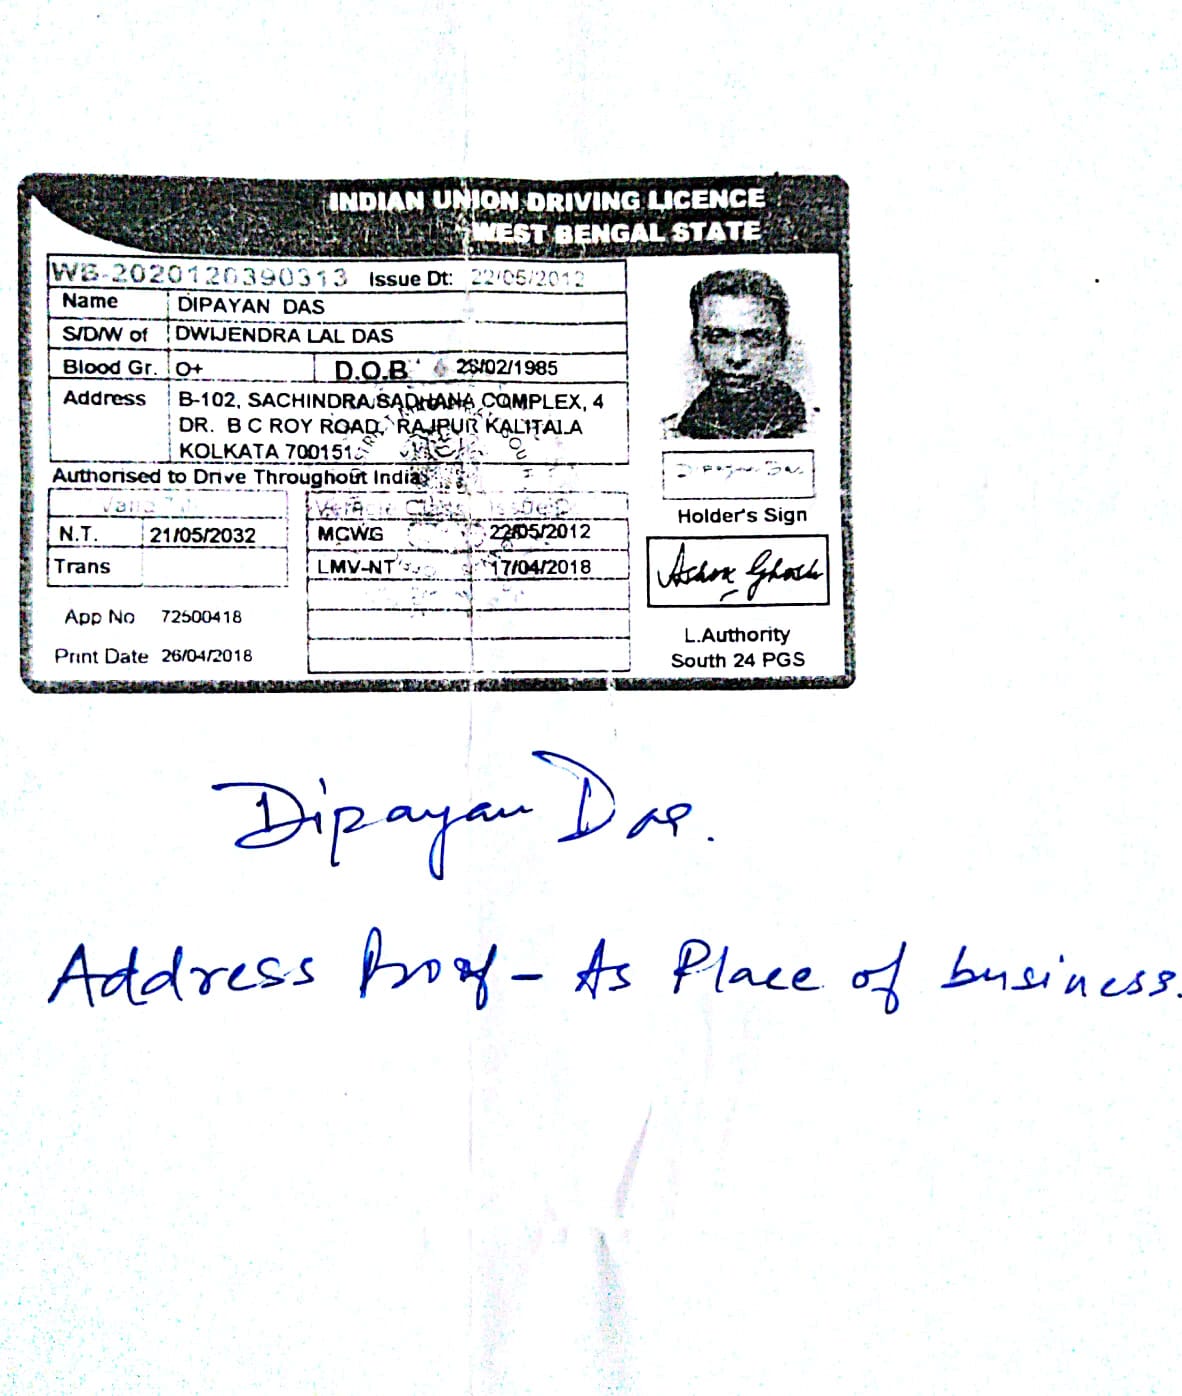 INDIAN UNION DRIVING LICENCE
WEST BENGAL STATE
WB-2020120390313 Issue Dt: 22/05/2012
Name DIPAYAN DAS
S/D/W of DWIJENDRA LAL DAS
Blood Gr. O+ D.O.B 28/02/1985
Address B-102, SACHINDRA SADHANA COMPLEX, 4
DR. B C ROY ROAD, RAJPUR KALITALA
KOLKATA 700151
Authorised to Drive Throughout India
Valid Till
N.T. 21/05/2032
Trans
Vehicle Class Issue Dt
MCWG 22/05/2012
LMV-NT 17/04/2018
App No 72500418
Print Date 26/04/2018
Dipayan Das
Holder's Sign
Ashok Ghosh
L.Authority
South 24 PGS
Dipayan Das.
Address Proof - As Place of business.